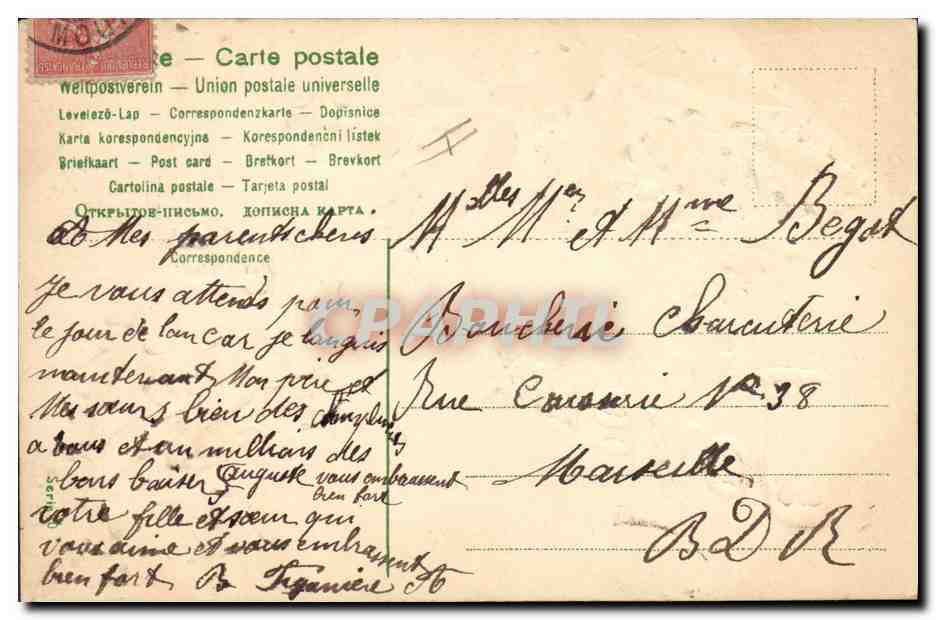 MOU
RÉPUBLIQUE FRANÇAISE
e — Carte postale
Weltpostverein — Union postale universelle
Levelező-Lap — Correspondenzkarte — Dopisnice
Karta korespondencyjna — Korespondenční lístek
Briefkaart — Post card — Brefkort — Brevkort
Cartolina postale — Tarjeta postal
Открытое-письмо. дописна карта.
Mes parents cheres
Correspondence
Je vous attends pour
le jour de lan car je languis
maintenant Mon père et
Mes sœurs bien des
a vous et un milliars des
bons baisers Auguste vous embrassent
bien fort
votre fille et sœur qui
vous aime et vous embrassent
bien fort B
Serie
Melles Mer et Mme Begot
Boucherie Charcuterie
Rue No 38
Marseille
B D R
CPAPHIL